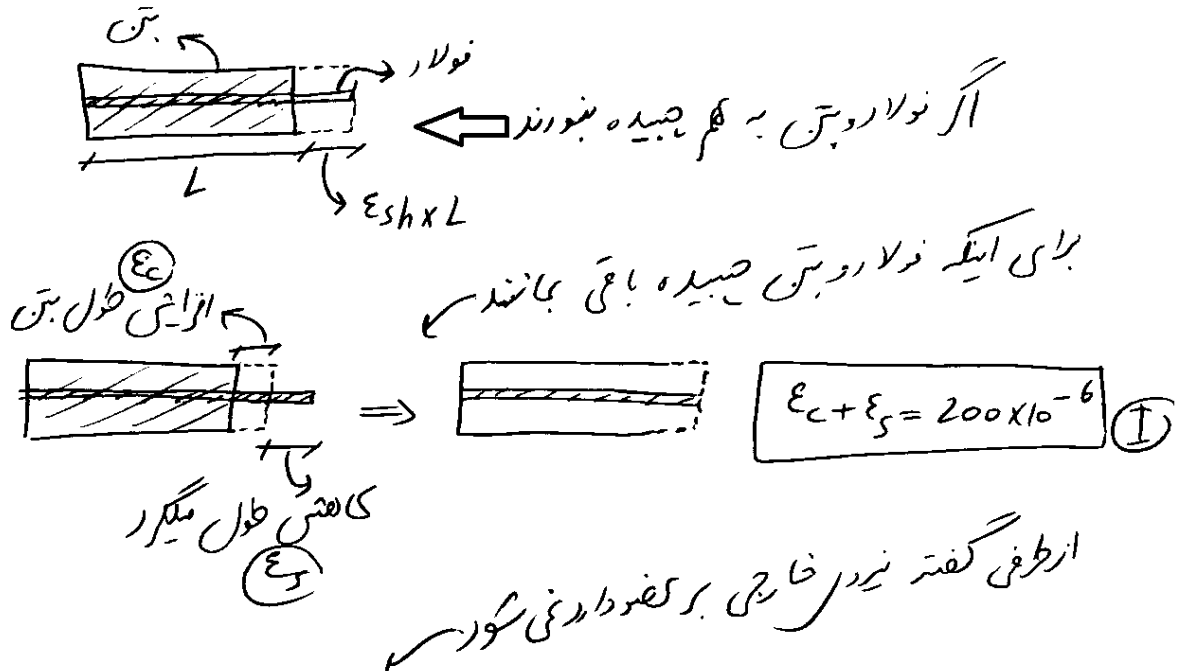 بتن
فولاد
اگر فولاد و بتن به هم چسبیده نبودند
L
εsh×L
برای اینکه فولاد و بتن چسبیده باقی بمانند
εc
افزایش طول بتن
⇒
εc + εs = 200×10⁻⁶ I
کاهش طول میلگرد
εs
از طرفی گفته نیروی خارجی بر عضو وارد نمی شود